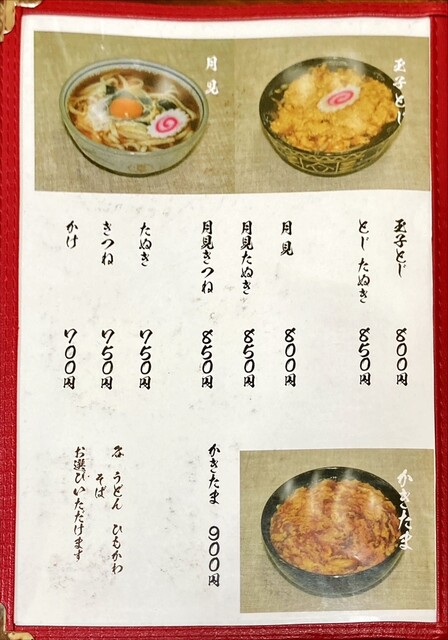 玉子とじ
月見
玉子とじ 800円
とじたぬき 850円
月見 800円
月見たぬき 850円
月見きつね 850円
たぬき 750円
きつね 750円
かけ 700円
かきたま
かきたま 900円
各 うどん ひもかわ
そば
お選びいただけます